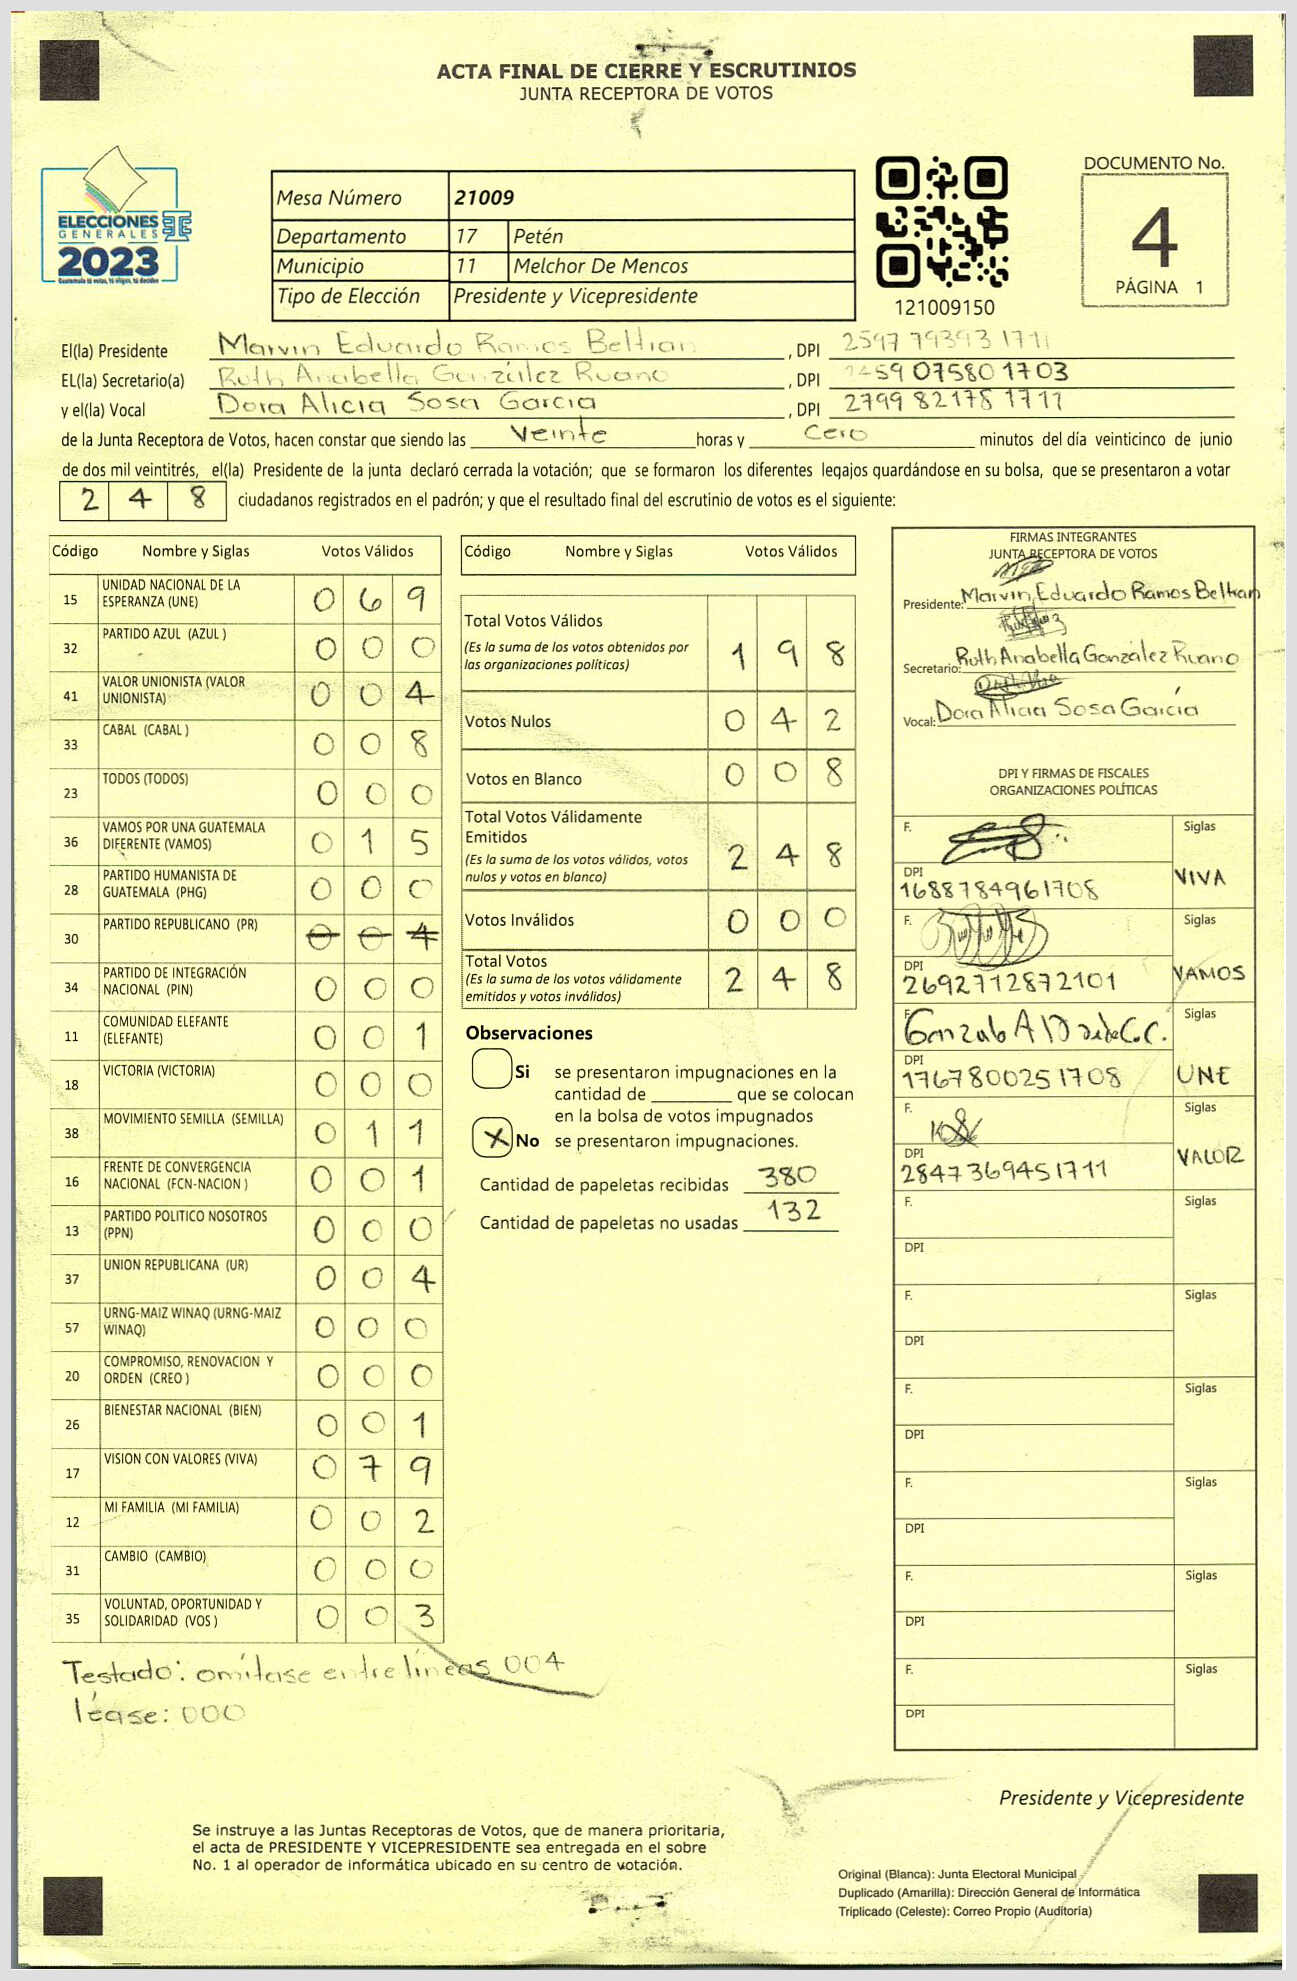 ACTA FINAL DE CIERRE Y ESCRUTINIOS
JUNTA RECEPTORA DE VOTOS
ELECCIONES
GENERALES
2023
Mesa Número 21009
Departamento 17 Petén
Municipio 11 Melchor De Mencos
Tipo de Elección Presidente y Vicepresidente
121009150
DOCUMENTO No.
4
PÁGINA 1
El(la) Presidente Marvin Eduardo Ramos Beltran, DPI 2597 79393 1711
EL(la) Secretario(a) Ruth Anabella González Ruano, DPI 459 07580 1703
y el(la) Vocal Dora Alicia Sosa Garcia, DPI 2799 82178 1711
de la Junta Receptora de Votos, hacen constar que siendo las Veinte horas y Cero minutos del día veinticinco de junio
de dos mil veintitrés, el(la) Presidente de la junta declaró cerrada la votación; que se formaron los diferentes legajos quardándose en su bolsa, que se presentaron a votar
2 4 8 ciudadanos registrados en el padrón; y que el resultado final del escrutinio de votos es el siguiente:
Código Nombre y Siglas Votos Válidos
15 UNIDAD NACIONAL DE LA ESPERANZA (UNE) 0 6 9
32 PARTIDO AZUL (AZUL ) 0 0 0
41 VALOR UNIONISTA (VALOR UNIONISTA) 0 0 4
33 CABAL (CABAL ) 0 0 8
23 TODOS (TODOS) 0 0 0
36 VAMOS POR UNA GUATEMALA DIFERENTE (VAMOS) 0 1 5
28 PARTIDO HUMANISTA DE GUATEMALA (PHG) 0 0 0
30 PARTIDO REPUBLICANO (PR) 0 0 4
34 PARTIDO DE INTEGRACIÓN NACIONAL (PIN) 0 0 0
11 COMUNIDAD ELEFANTE (ELEFANTE) 0 0 1
18 VICTORIA (VICTORIA) 0 0 0
38 MOVIMIENTO SEMILLA (SEMILLA) 0 1 1
16 FRENTE DE CONVERGENCIA NACIONAL (FCN-NACION ) 0 0 1
13 PARTIDO POLITICO NOSOTROS (PPN) 0 0 0
37 UNION REPUBLICANA (UR) 0 0 4
57 URNG-MAIZ WINAQ (URNG-MAIZ WINAQ) 0 0 0
20 COMPROMISO, RENOVACION Y ORDEN (CREO ) 0 0 0
26 BIENESTAR NACIONAL (BIEN) 0 0 1
17 VISION CON VALORES (VIVA) 0 7 9
12 MI FAMILIA (MI FAMILIA) 0 0 2
31 CAMBIO (CAMBIO) 0 0 0
35 VOLUNTAD, OPORTUNIDAD Y SOLIDARIDAD (VOS ) 0 0 3
Testado: omítase entre líneas 004
léase: 000
Código Nombre y Siglas Votos Válidos
Total Votos Válidos
(Es la suma de los votos obtenidos por
las organizaciones políticas) 1 9 8
Votos Nulos 0 4 2
Votos en Blanco 0 0 8
Total Votos Válidamente
Emitidos
(Es la suma de los votos válidos, votos
nulos y votos en blanco) 2 4 8
Votos Inválidos 0 0 0
Total Votos
(Es la suma de los votos válidamente
emitidos y votos inválidos) 2 4 8
Observaciones
Si se presentaron impugnaciones en la
cantidad de ________ que se colocan
en la bolsa de votos impugnados
X No se presentaron impugnaciones.
Cantidad de papeletas recibidas 380
Cantidad de papeletas no usadas 132
FIRMAS INTEGRANTES
JUNTA RECEPTORA DE VOTOS
Presidente: Marvin Eduardo Ramos Beltran
Secretario: Ruth Anabella González Ruano
Vocal: Dora Alicia Sosa García
DPI Y FIRMAS DE FISCALES
ORGANIZACIONES POLÍTICAS
F. Siglas
DPI 1688784961708 VIVA
F. Siglas
DPI 2692712872101 VAMOS
F. Gonzalo A Siglas
DPI 1767800251708 UNE
F. Siglas
DPI 2847369451711 VALOR
F. Siglas
DPI
F. Siglas
DPI
F. Siglas
DPI
F. Siglas
DPI
F. Siglas
DPI
F. Siglas
DPI
Presidente y Vicepresidente
Se instruye a las Juntas Receptoras de Votos, que de manera prioritaria,
el acta de PRESIDENTE Y VICEPRESIDENTE sea entregada en el sobre
No. 1 al operador de informática ubicado en su centro de votación.
Original (Blanca): Junta Electoral Municipal
Duplicado (Amarilla): Dirección General de Informática
Triplicado (Celeste): Correo Propio (Auditoría)